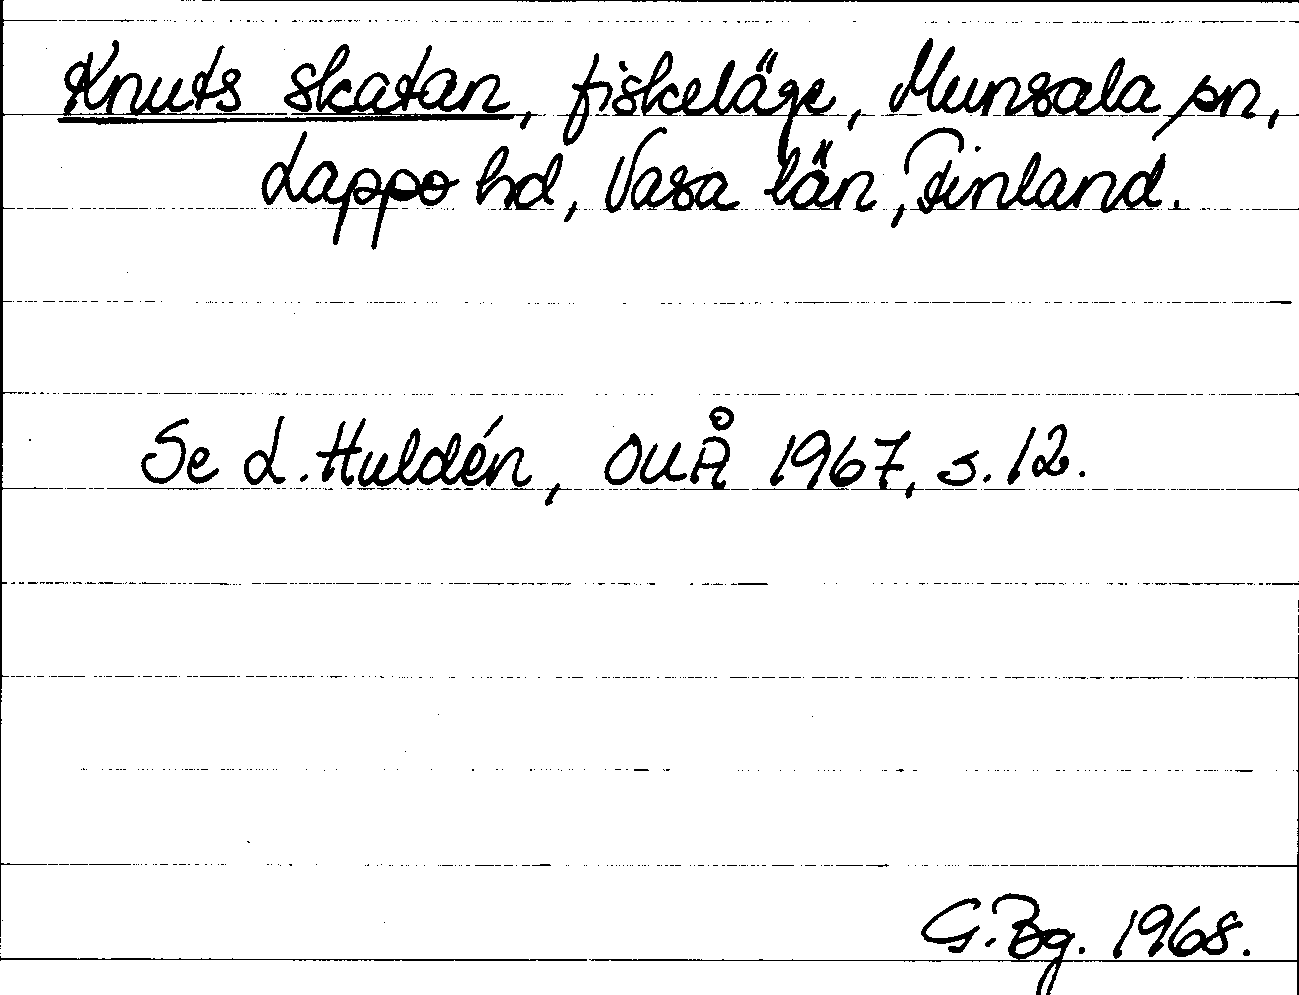 Knuts skatan, fiskeläge, Munsala sn,
Lappo hd, Vasa län, Finland.
Se L. Huldén, OUÅ 1967, s. 12.
G. Bg. 1968.